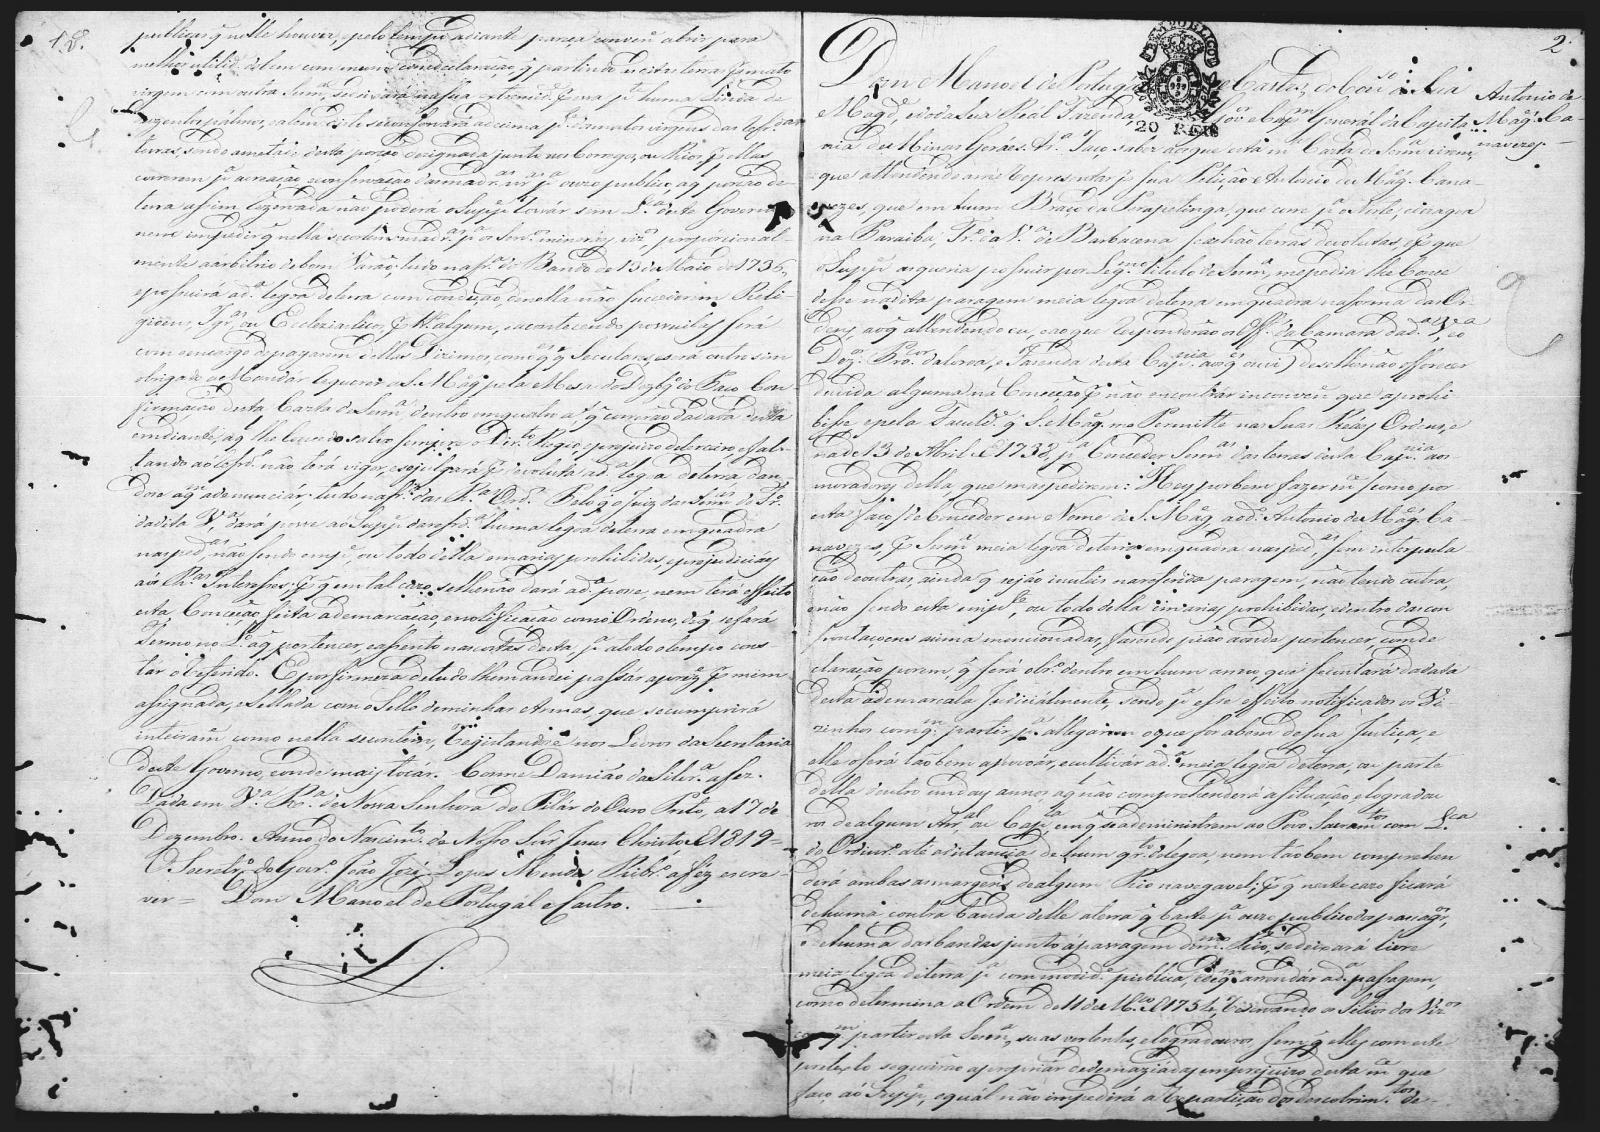 1.v.
publicas q̃ nelle houver, e pelo tempo adiante pareça conven.te abrir para
melhor utilid.e do bem commum: com declaração, q̃ partindo as ditas terras p.r mato
virgem com outra Sesm.a se deixará na sua extremid.e p.r huma linha de
duzentos palmos, e alem disto se conservará a decima p.te de matos virgens das refr.das
terras, sendo ametade desta porção designada junto aos Corregos, ou Rios, q̃ pellas
correrem p.a creação, e conservação das madr.as ao p.a o uso publico, a q̃ porção de
terra assim rezervada não poderá o Supp.e roçar sem L.ça deste Governo,
nem impedir q̃ nella se cortem madr.as p.a os Serv.os mineraes viz.os, proporcional-
mente a arbitrio de bom Varão, tudo na fr.a do Bando de 13 de Maio de 1736,
e possuirá a d.a legoa de terra com condição, de nella não sucederem Reli-
gioens, Igr.as, ou Ecclesiasticos, p.r tt.o algum, e acontecendo possuilas será
com o encargo de pagarem dellas Dizimos, como q.esq.r Seculares; será outro sim
obrigado a Mandár requerer a S. Mag.e pela Meza do Dezbg.o do Paço Con-
firmação desta Carta de Sesm.a dentro em quatro a.s q̃ correrão da data desta
em diante, a q̃ lhe concedo salvo sempre o Dir.to Regio, e prejuizo de terceiro, e fal-
tando ao refr.do não terá vigor, e se julgará p.r devoluta a d.a legoa de terra dan
dose a q.m a denunciár, tudo na fr.a das R.es Ord.s Pelo q̃ o Juiz das Sesm.as do Tr.o
da dita V.a dará posse ao Supp.e da refr.da huma legoa de terra em quadra
na sped.as, não sendo em p.te, ou todo della em areas prohibidas, e prejudiciáes
aos R.es Interesses; p.r q̃ em tal cazo se lhe não dará a d.a posse, nem terá effeito
esta Conceção, feita a demarcação, e notificação como Ordeno, de q̃ se fará
Termo no L.o a q̃ pertencer, e assento nas costas desta p.a a todo o tempo cons-
tar o referido. E por firmeza de tudo lhe mandei passár a prez.te p.r mim
assignada, e Sellada com o Sello de minhas Armas, que se cumprirá
inteiram.te como nella se contém, registandose nos Livros da Secretaria
deste Governo, e onde mais tocár. Cosme Damião da Silv.a a fez.
Dada em V.a R.a de Nossa Senhora do Pilár do Ouro Preto, a 17 de
Dezembro. Anno do Nascim.to de Nosso Sn.r Jesus Christo de 1819 =
O Secretr.o do Gov.o João Jozé Lopes Mendes Ribr.o a fêz escre-
ver = Dom Manoel de Portugal e Castro.
2
20 REIS
Antonio de
Mag.es Ca-
navezes
Dom Manoel de Portugal e Castro, do Cons.o de Sua
Mag.de, e do da Sua Reál Fazenda, Gov.or e Cap.m General da Capita
nia de Minas Geráes. &.a Faço saber aos que esta m.a Carta de Sesm.a virem,
que attendendo a me representar p.r sua Petição Antonio de Mag.es Cana-
vezes, que em hum Braço da Parapetinga, que corre p.a o Norte, e dezagoa
na Paraiba, Tr.o da V.a de Barbacena se achão terras devolutas, e p.r que
o Supp.e as queria possuir por Leg.mo titulo de Sesm.a, me pedia lhe Conce
desse na dita paragem meia legoa de terra em quadra na forma das Or
dens, ao q̃ attendendo eu, e ao que responderão os Off.es da Camara da d.a V.a, e o
Dez.or Pro.or da Coroa, e Fazenda desta Cap.nia (aos q̃ ouvi) de se lhe não offerecer
duvida alguma na Conceção p.r não encontrár inconven.te que a prohi
bisse e pela Faculd.e q̃ S. Mag.e me Permitte nas Suas Reáes Ordens, e
na de 13 de Abril de 1738, p.a Conceder Sesm.as das terras desta Cap.nia aos
moradores della, que mas pedirem: Hey por bem fazer m.ce como por
esta faço de Conceder em Nome de S. Mag.e ao d.o Antonio de Mag.es Ca-
navezes, p.r Sesm.a meia legoa de terra em quadra na sped.as, sem interpola
ção de outras, ainda q̃ sejão inuteis na referida paragem, não tendo outra,
e não sendo esta em p.te, ou todo della em areas prohibidas, e dentro das con
frontaçoens acima mencionadas, fazendo pião aonde pertencer, com de
claração porem q̃ será obr.o dentro em hum anno, que se contará da data
desta a demarcala Judicialmente, sendo p.a esse effeito notificados os Vi
zinhos com q.m partir p.a allegárem o que for a bem de sua Justiça, e
elle o será taobem a povoár, e cultivár a d.a meia legoa de terra, ou parte
della dentro em dous annos, a q̃ não comprehenderá a situação, e logradou
ros de algum Arr.al, ou Cap.la em q̃ se administrem ao Povo Sacram.tos com L.ça
do Ordinr.o até a distancia de hum qr.to de legoa, nem taobem comprehen
derá ambas as margens de algum Rio navegavel; p.r q̃ neste cazo ficará
de huma, e outra banda delle a terra q̃ baste p.a o uzo publico dos passag.os,
e de huma das bandas junto á passagem do m.mo Rio, se deixará livre
meia legoa de terra p.a commodid.e publica, e de q.m arrendár a d.a passagem,
como determina a Ordem de 11 de M.ço de 1754, rezervando os Sitios dos Viz.os
com q.m partir esta Sesm.a, suas vertentes, e logradouros, sem q̃ elles com este
pretexto se queirão apropriar de demaziadas em prejuizo desta m.ce que
faço áo Supp.e, o qual não impedirá a repartição dos descobrim.tos de